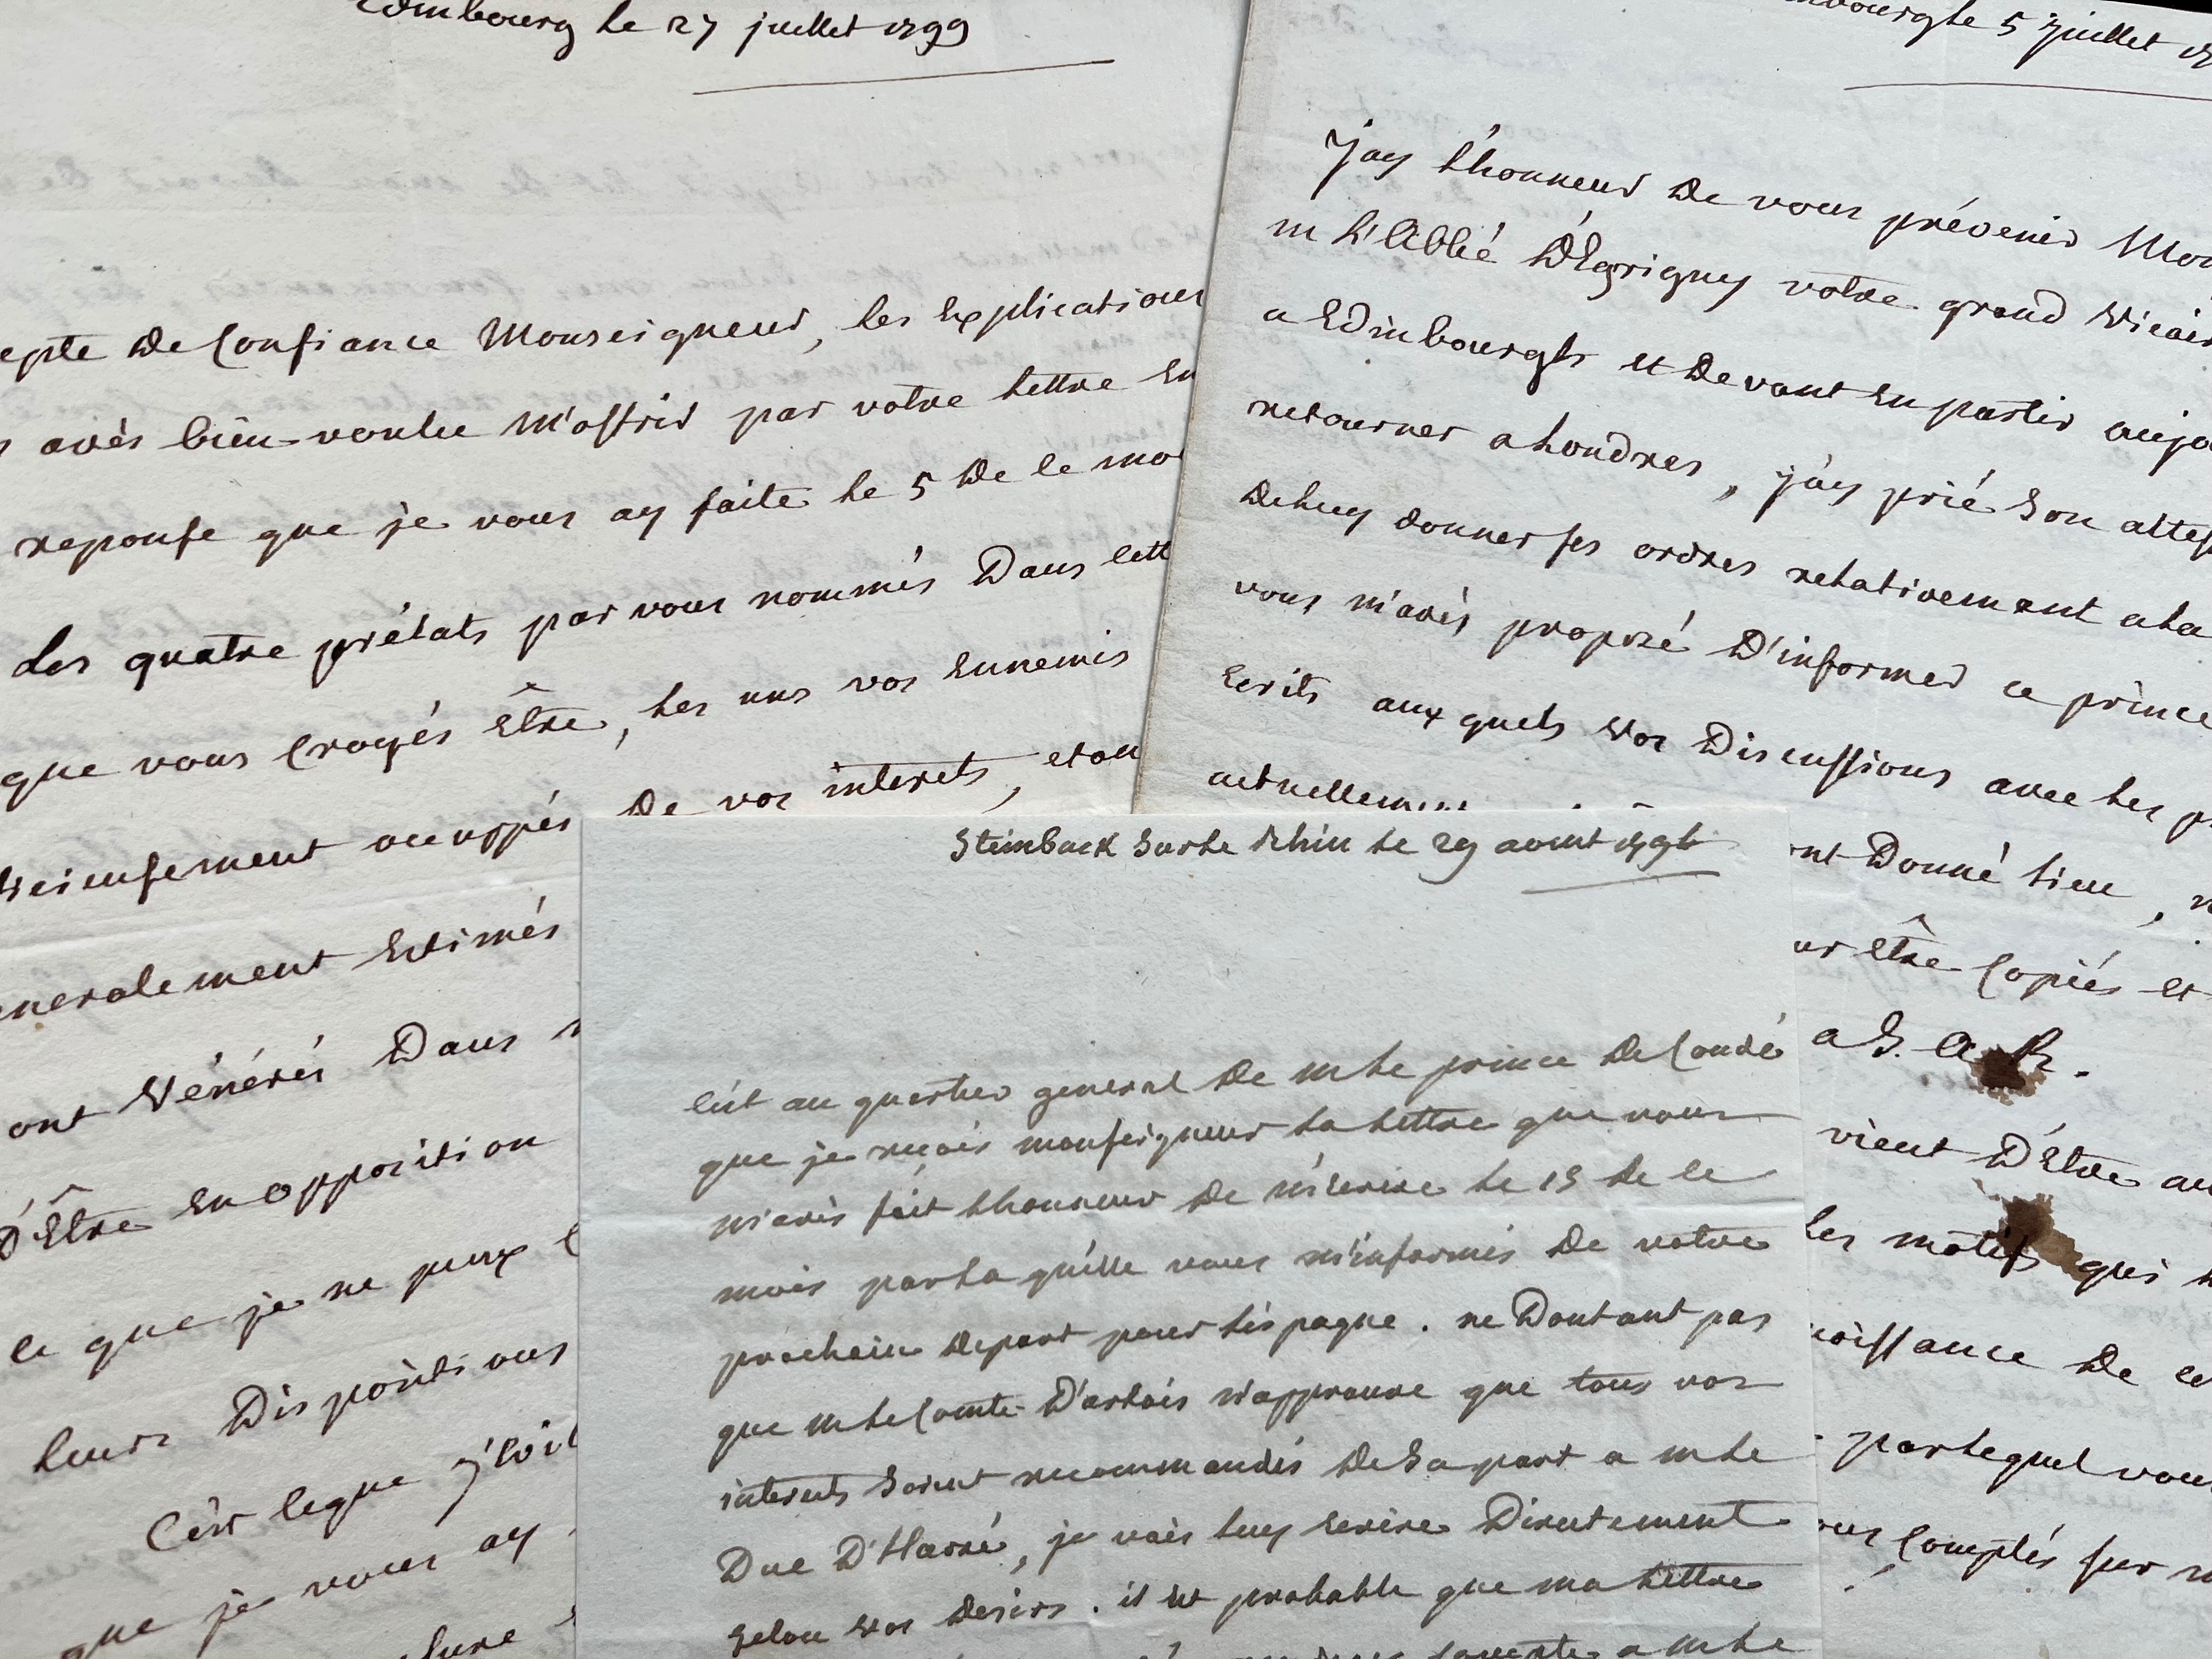 Edimbourg le 27 juillet 1799
epte de Confiance Monseigneur, les Explications
avés bien-voulu m'offrir par votre lettre En
reponse que je vous ay faite le 5 De Ce mo
Les quatre prélats par vous nommés Dans Cett
que vous Croyés Être, les uns vos Ennemis
ieusement occuppés De vos interets, et ou
neralement Estimés
ont Vénérés Dans
d'Être En opposition
Ce que je ne peux
leurs Dispositions
C'ést Ceque j'
que je vous ay
mbourg le 5 juillet
j'ay l'honneur De vous prévenir Mon
m L'Abbé D'Egrigny votre grand Vicair
a Edimbourgh et Devant En partir aujo
retourner a Londres, j'ay prié Son altes
De luy donner ses ordres relativement a la
vous m'avés proposé D'informer ce prince
Ecrits auxquels Vos Discussions avec les p
actuellement
ont Donné lieu,
ur Être Copiés et
a S. A. R.
vient D'Être au
les motifs qui
noissance De ce
par lequel vous
ous Comptés sur
Steinback Sur le Rhin le 29 aoust 1796
C'est au quartier general De m le prince De Condé
que je reçois monseigneur la lettre que vous
m'avés fait l'honneur De m'écrire le 15 De Ce
mois par la qu'elle vous m'informés De votre
prochain Depart pour L'éspagne. ne Doutant pas
que m le Comte D'artois n'approuve que tous vos
interets Soient recommandés De Sa part a m le
Duc D'Havré, je vais luy Ecrire Directement
Selon Vos Desirs. il est probable que ma lettre
a m le